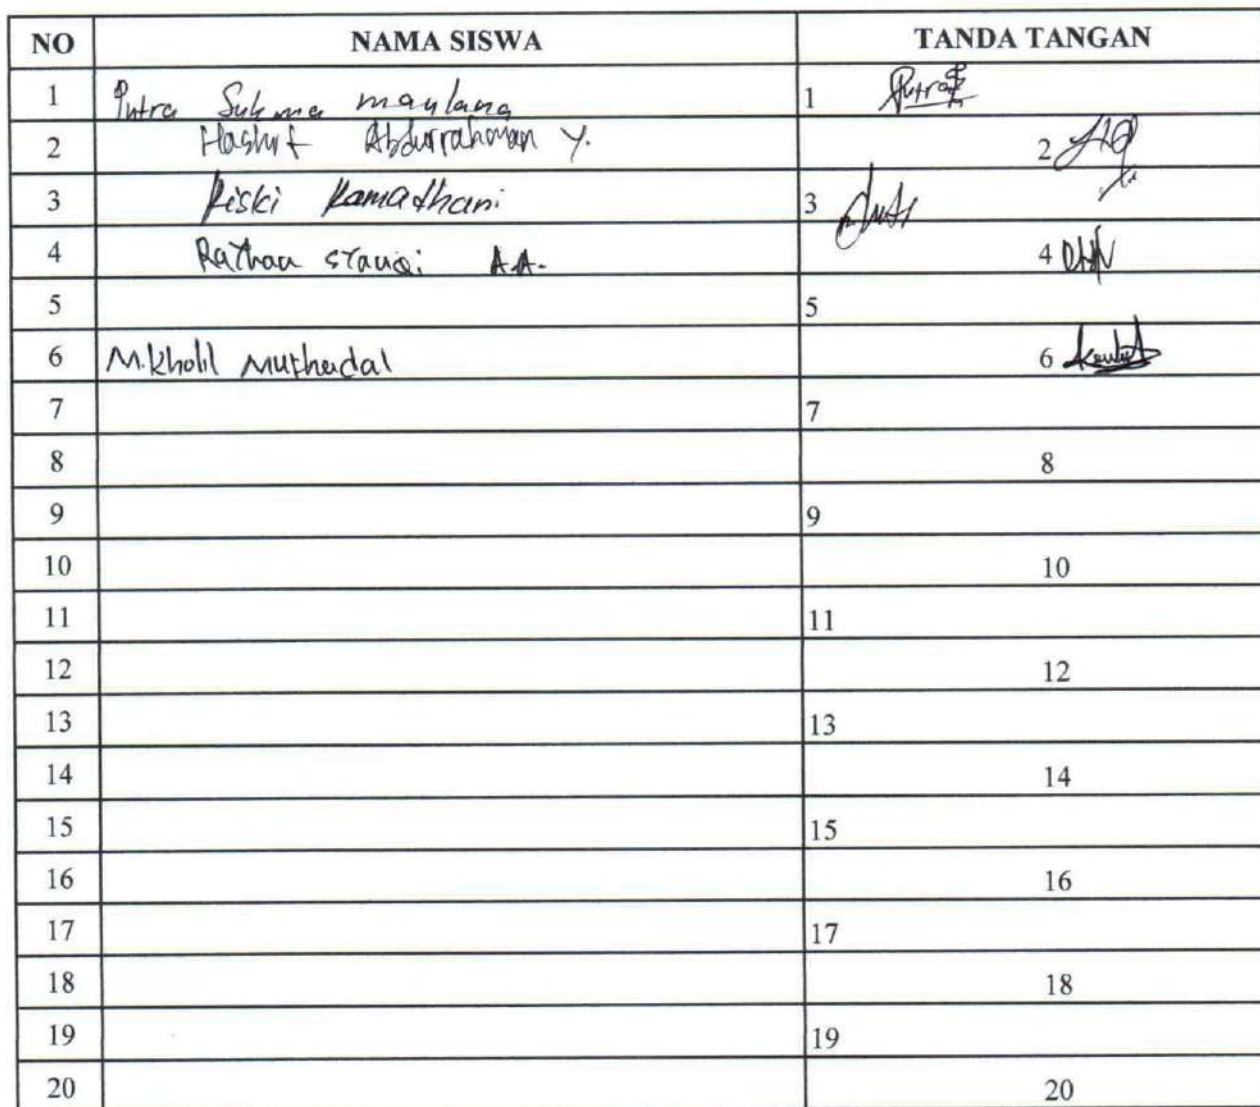 NO NAMA SISWA TANDA TANGAN
1 Putra Sukma maulana 1 Putra
2 Hashif Abdurrahman Y. 2
3 Riski Ramadhani 3
4 Raihan A.A. 4
5 5
6 M. Kholil 6
7 7
8 8
9 9
10 10
11 11
12 12
13 13
14 14
15 15
16 16
17 17
18 18
19 19
20 20